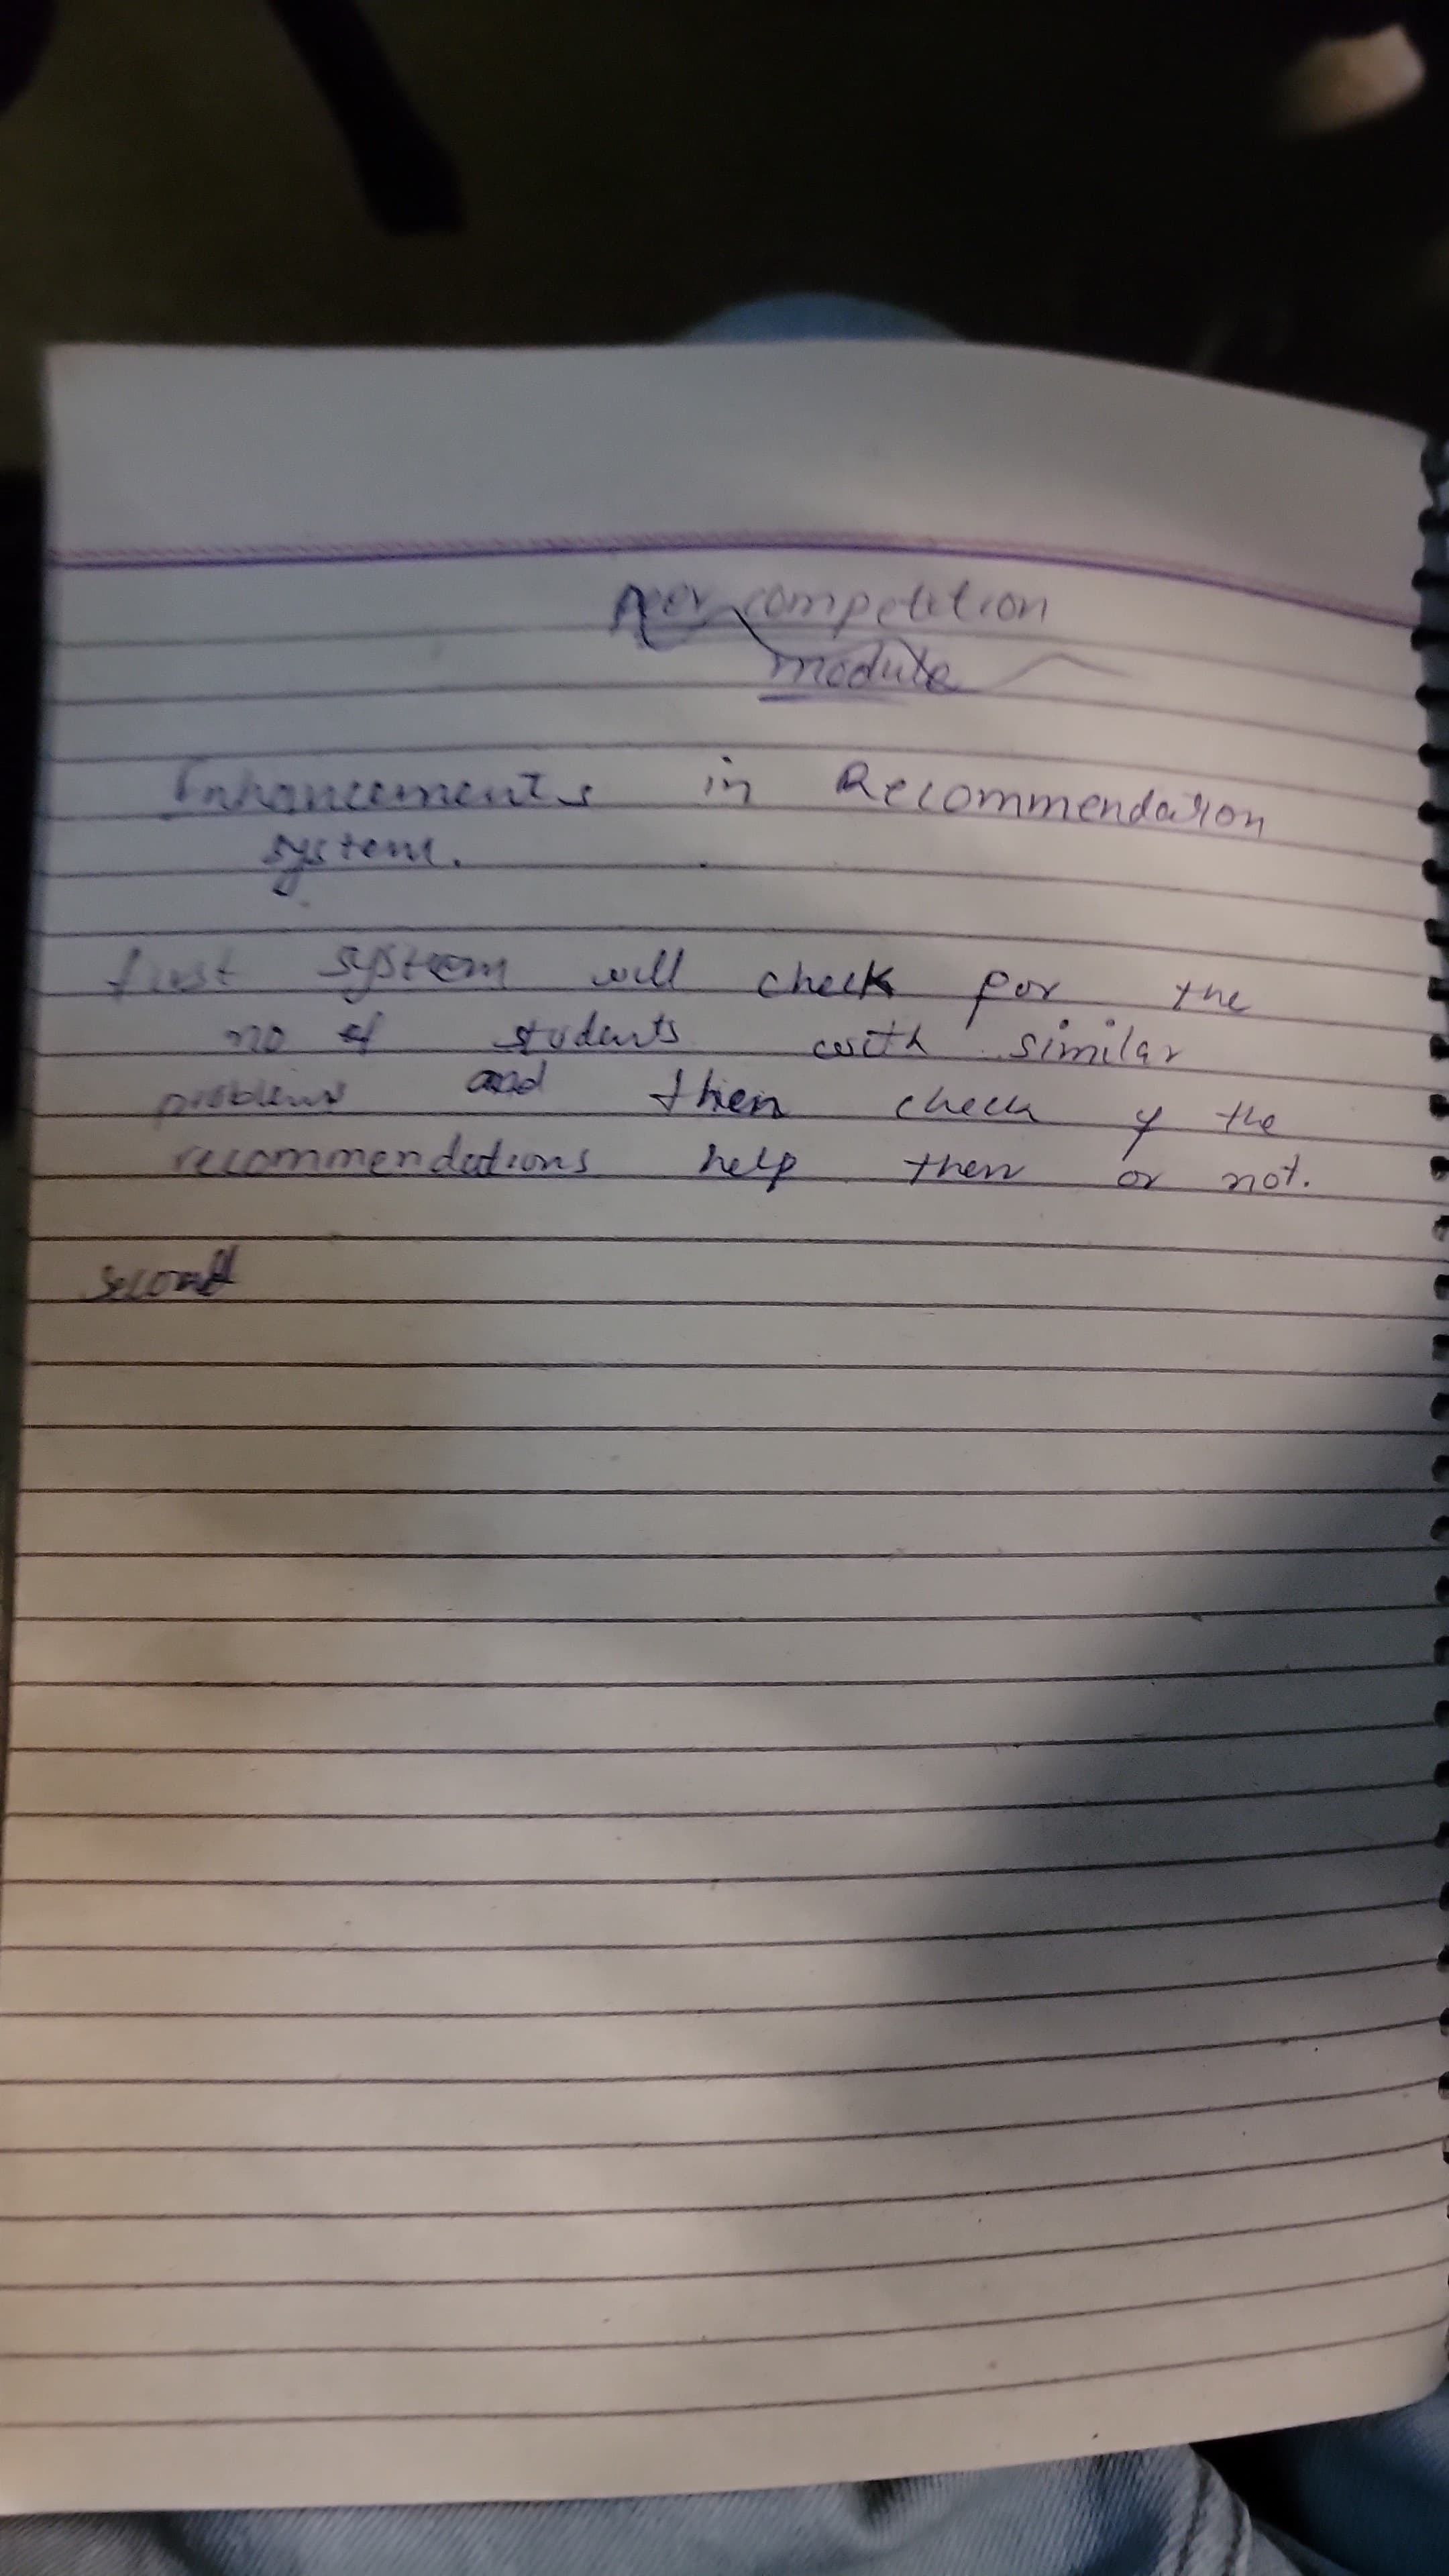 peer competition
module
Enhancements in Recommendation
system.
first system will check for the
no of students with similar
problems and then check if the
recommendations help them or not.
second